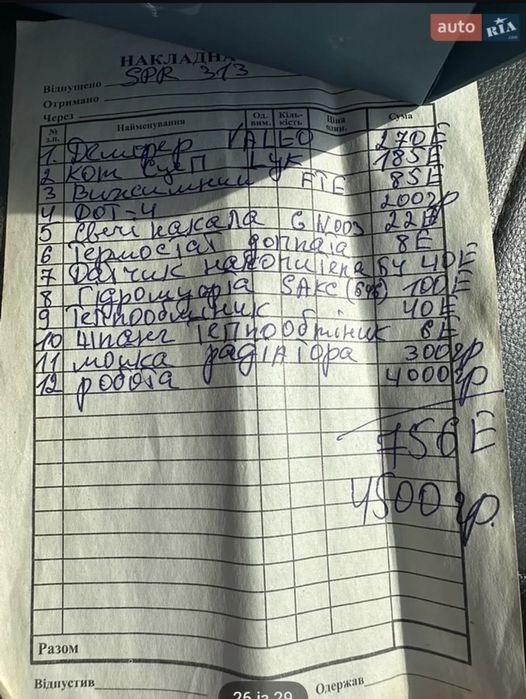 auto RIA .com
НАКЛАДНА
SPR 313
Відпущено
Отримано
Через
№ з.п. Найменування Од. вим. Кіль-кість Ціна один. Сума
1. Демфер VALEO 270 Е
2 Кот Сцеп LyK 185 Е
3 Вижимний FTE 85 Е
4 ДОТ-4 200гр
5 Свечі накала GN003 22Е
6 Термостат допхата 8 Е
7 Датчик БУ 40 Е
8 Гідромуфта SAKC (бу) 100 Е
9 Теплообмінник 40 Е
10 Шланг Теплообмінник 6 Е
11 мойка радіатора 300 гр
12 робота 4000 гр
756 Е
4500 гр.
Разом
Відпустив
Одержав
26 із 29